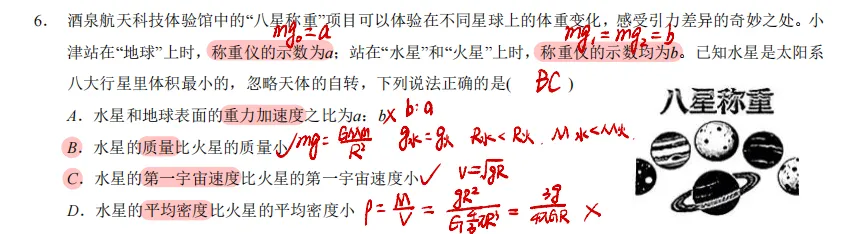 mg₀=a  mg₁=mg₂=b
6. 酒泉航天科技体验馆中的“八星称重”项目可以体验在不同星球上的体重变化，感受引力差异的奇妙之处。小
津站在“地球”上时，称重仪的示数为a；站在“水星”和“火星”上时，称重仪的示数均为b。已知水星是太阳系
八大行星里体积最小的，忽略天体的自转，下列说法正确的是( BC )
A．水星和地球表面的重力加速度之比为a：b × b:a
B．水星的质量比火星的质量小 ✓ mg=GMm/R² g水=g火 R水<R火．M水<M火
C．水星的第一宇宙速度比火星的第一宇宙速度小 ✓ V=√gR
D．水星的平均密度比火星的平均密度小 ρ=M/V=gR²/(G4/3πR³)=3g/4πGR ×
八星称重